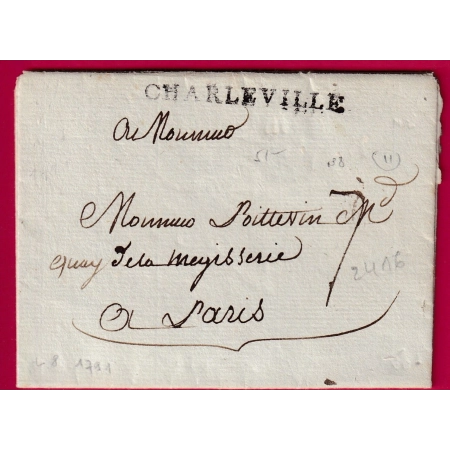 CHARLEVILLE
A Monsieur
51-
(11)
Monsieur Poittevin Md
7
quay de la megisserie
2416
A Paris
8 1791